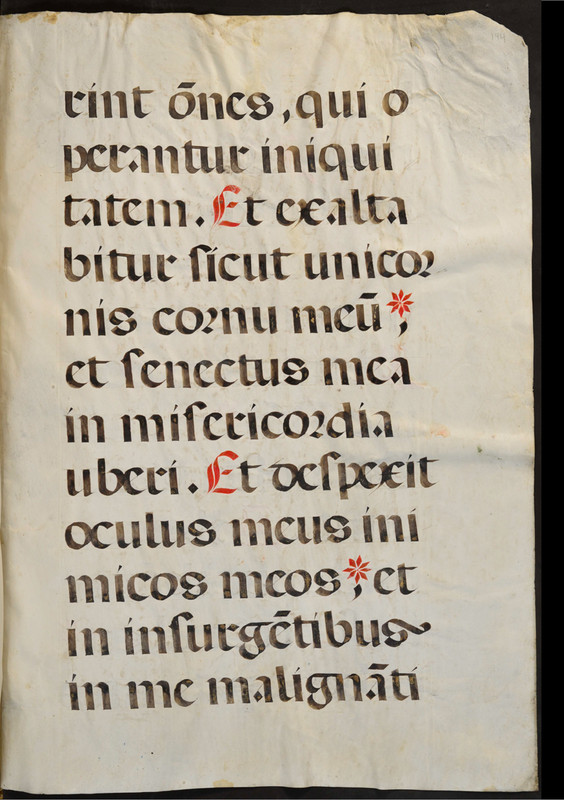 rint õnes, qui o
perantur iniqui
tatem. Et exalta
bitur ſicut unicoꝛ
nis coꝛnu meū *;
et ſenectus mea
in miſericoꝛdia
uberi. Et deſpexit
oculus meus ini
micos meos *; et
in inſurgẽtibus
in me malignãti